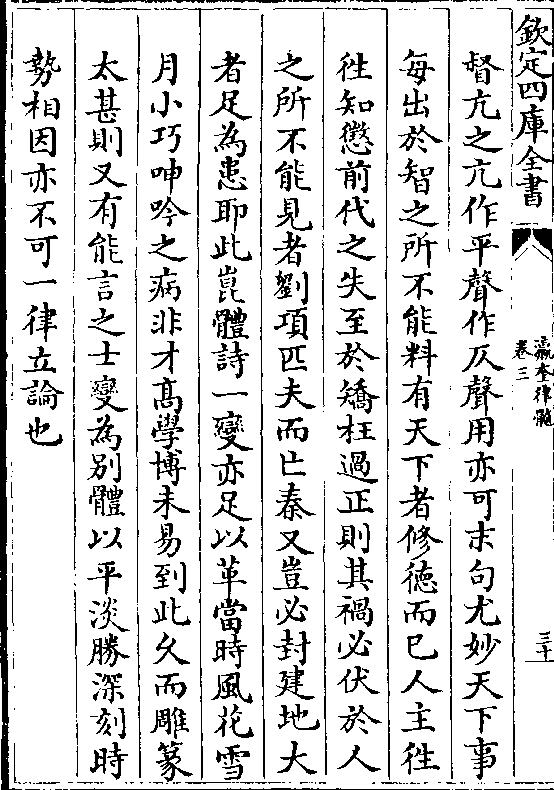 欽定四庫全書
瀛奎律髓
卷三
三十
督亢之亢作平聲作仄聲用亦可末句尤妙天下事
每出於智之所不能料有天下者修德而已人主徃
徃知懲前代之失至於矯枉過正則其禍必伏於人
之所不能見者劉項匹夫而亡秦又豈必封建地大
者足為患耶此崑體詩一變亦足以革當時風花雪
月小巧呻吟之病非才髙學博未易到此久而雕篆
太甚則又有能言之士變為别體以平淡勝深刻時
勢相因亦不可一律立論也